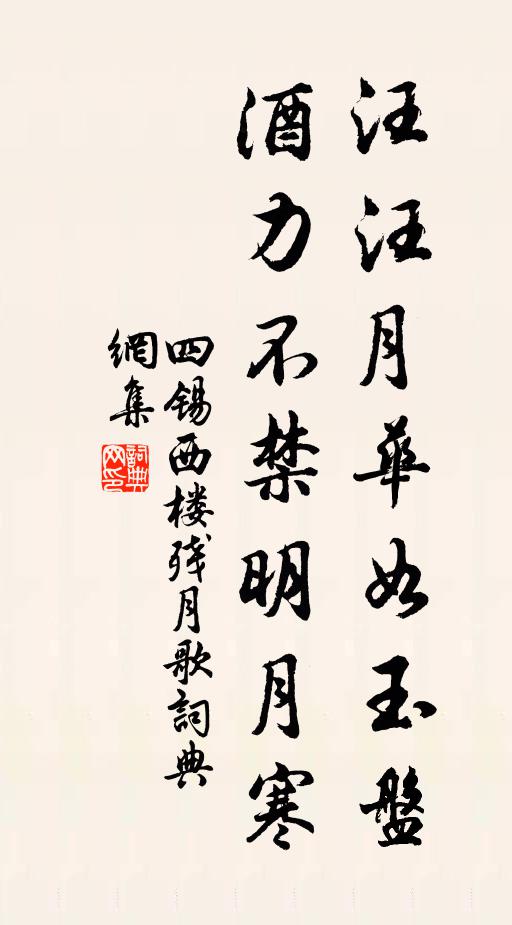 汪汪月華如玉盤
酒力不禁明月寒
四锡西楼残月歌詞典
網集
詞典
网印